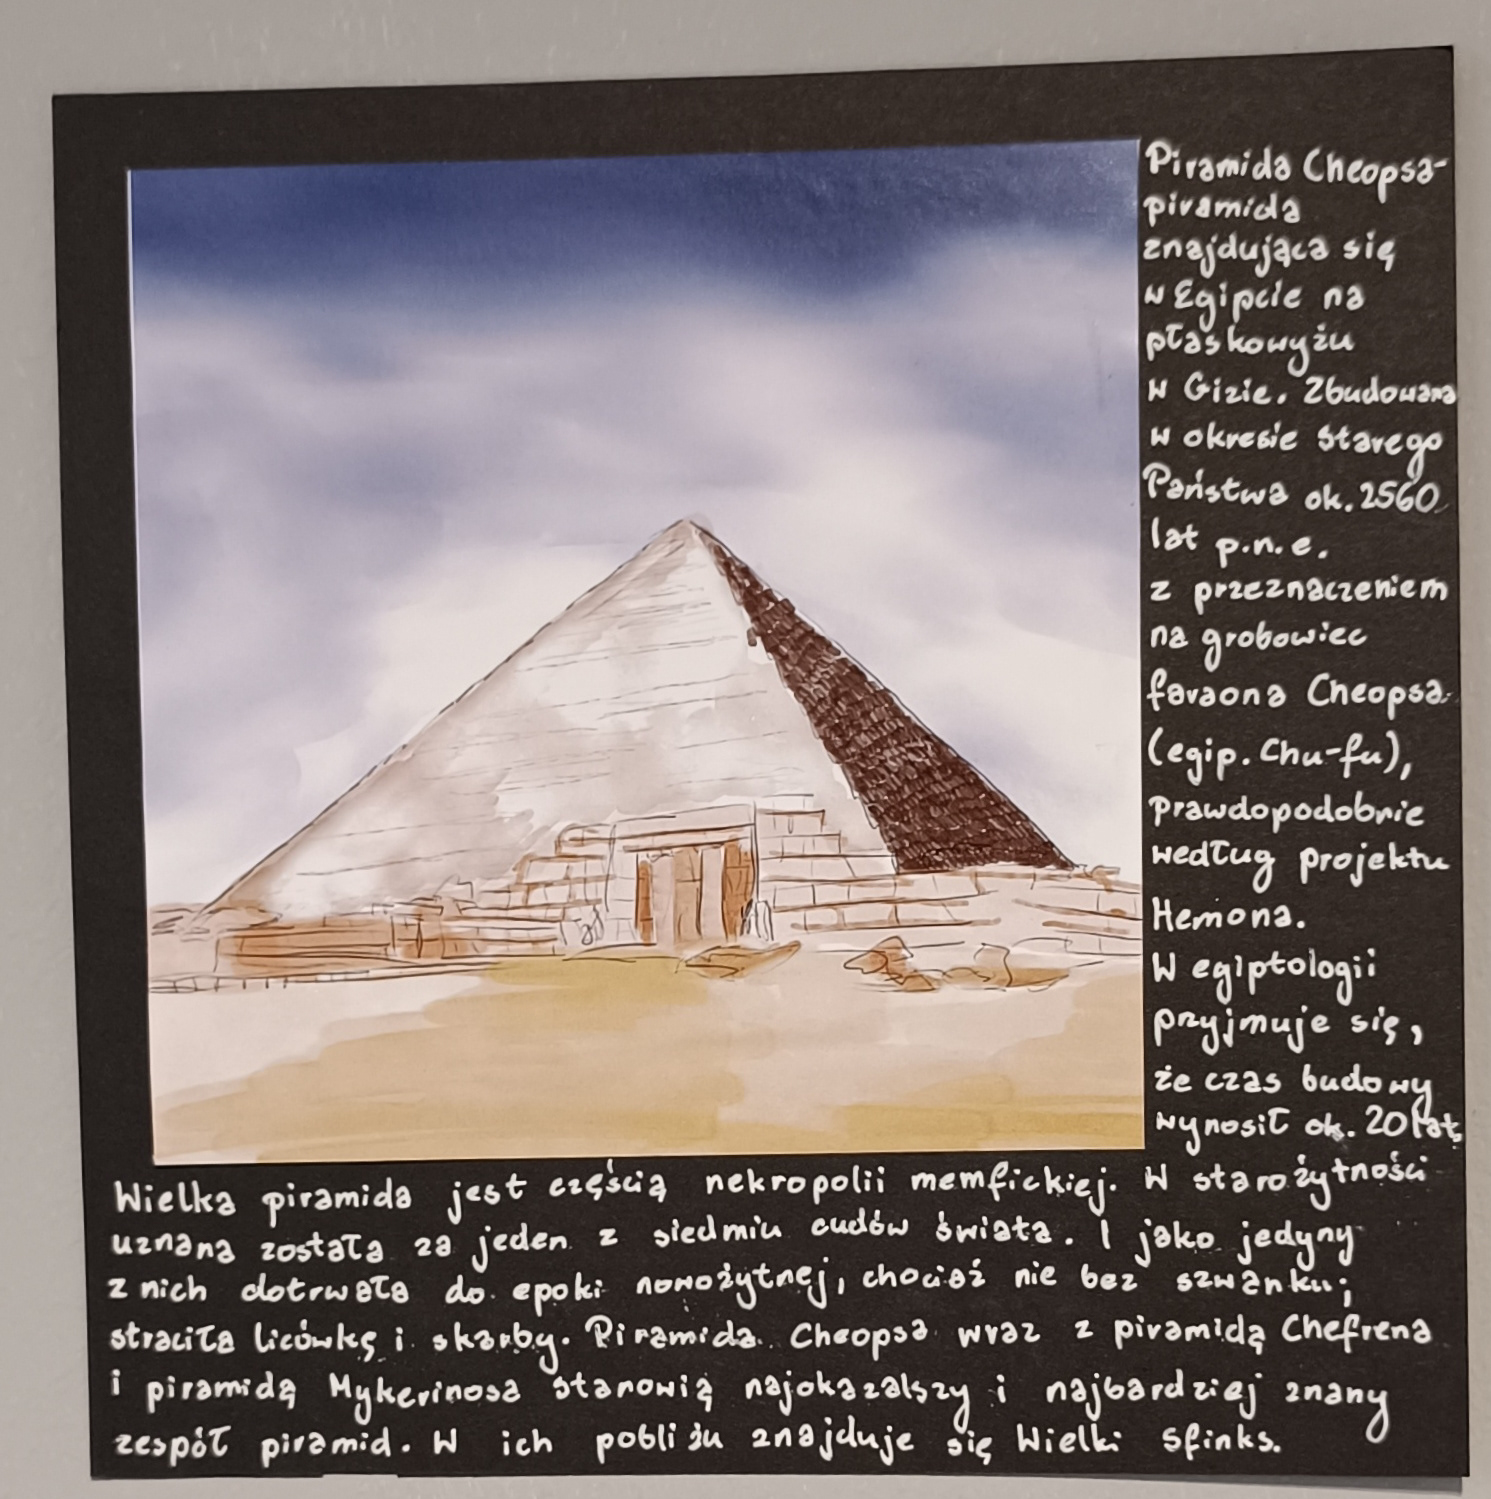 Piramida Cheopsa-
piramida
znajdująca się
w Egipcie na
płaskowyżu
w Gizie. Zbudowana
w okresie Starego
Państwa ok. 2560
lat p.n.e.
z przeznaczeniem
na grobowiec
faraona Cheopsa
(egip. Chu-fu),
prawdopodobnie
według projektu
Hemona.
W egiptologii
przyjmuje się,
że czas budowy
wynosił ok. 20 lat.
Wielka piramida jest częścią nekropolii memfickiej. W starożytności
uznana została za jeden z siedmiu cudów świata. I jako jedyny
z nich dotrwała do epoki nowożytnej, chociaż nie bez szwanku;
straciła licówkę i skarby. Piramida Cheopsa wraz z piramidą Chefrena
i piramidą Mykerinosa stanowią najokazalszy i najbardziej znany
zespół piramid. W ich pobliżu znajduje się Wielki Sfinks.